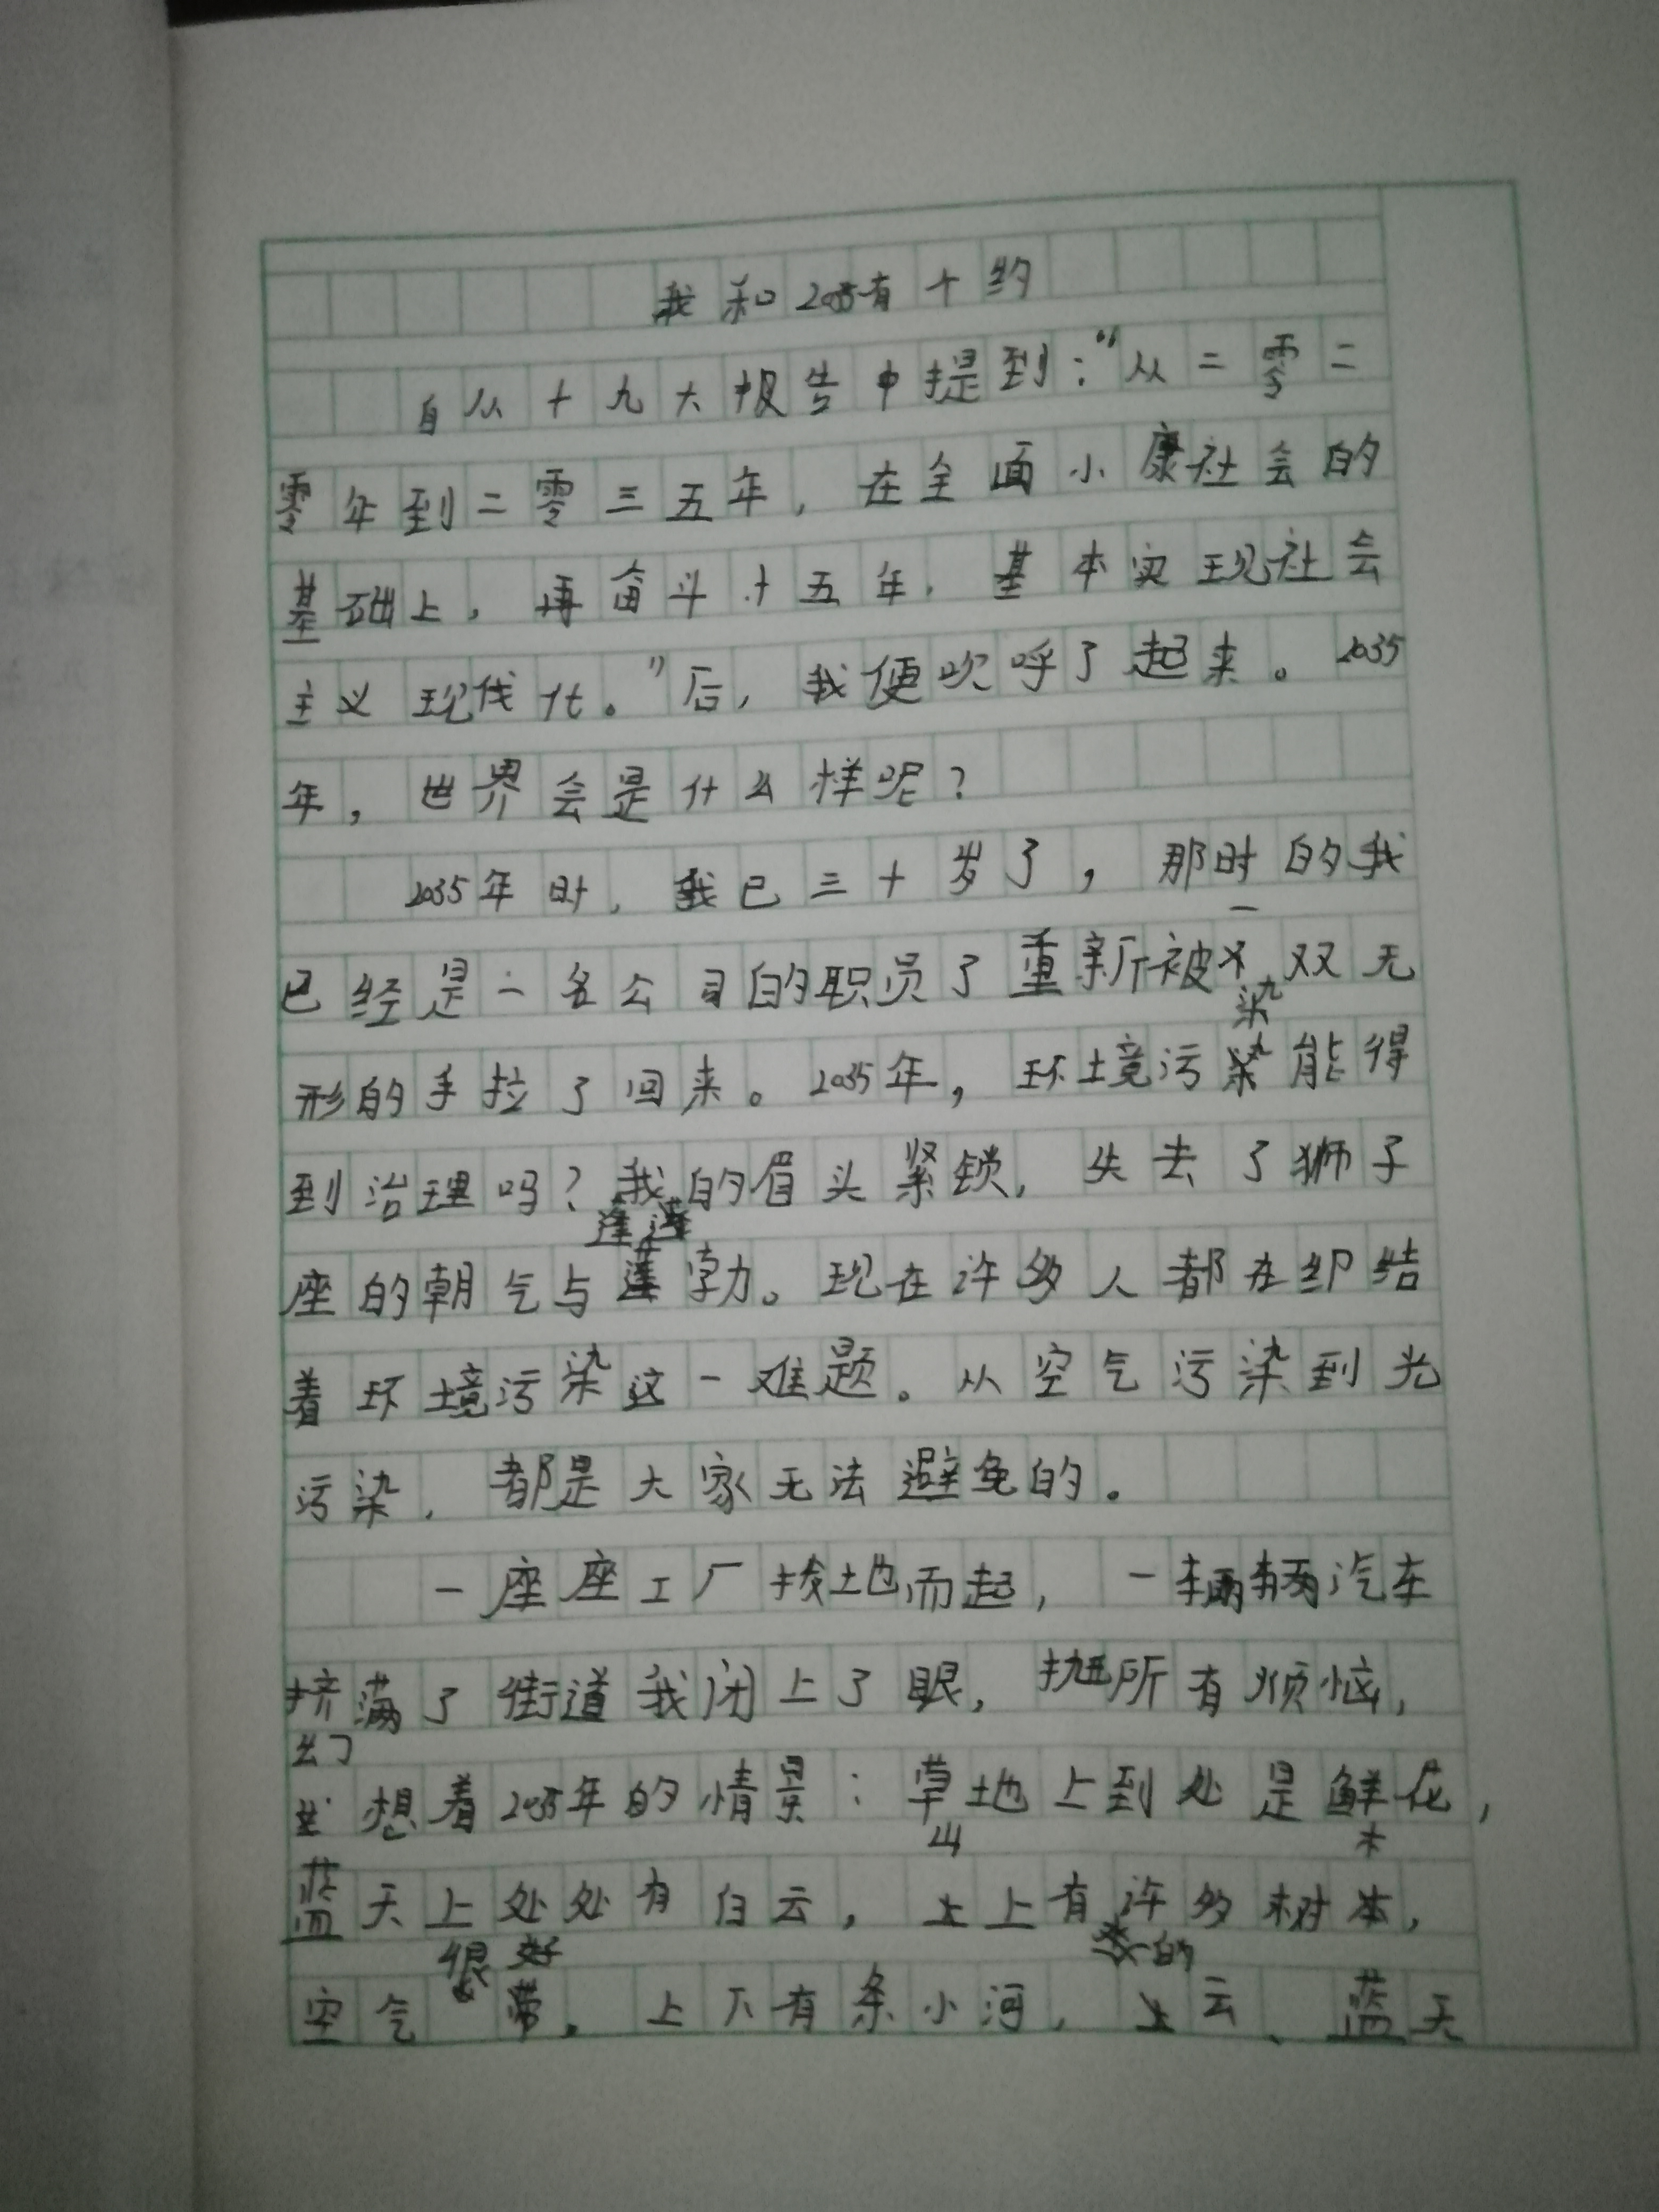 我和2035有个约
自从十九大报告中提到："从二零二
零年到二零三五年，在全面小康社会的
基础上，再奋斗十五年，基本实现社会
主义现代化。"后，我便欢呼了起来。2035
年，世界会是什么样呢？
2035年时，我已三十岁了，那时的我
已经是一名公司的职员了重新被一双无
形的手拉了回来。2035年，环境污染能得
到治理吗？我的眉头紧锁，失去了狮子
座的朝气与蓬勃。现在许多人都在纠结
着环境污染这一难题。从空气污染到光
污染，都是大家无法避免的。
一座座工厂拔地而起，一辆辆汽车
挤满了街道我闭上了眼，抛所有烦恼，
幻想着2035年的情景：草地上到处是鲜花，
蓝天上处处有白云，山上有许多树木，
空气很好，上下有条小河，的云、蓝天